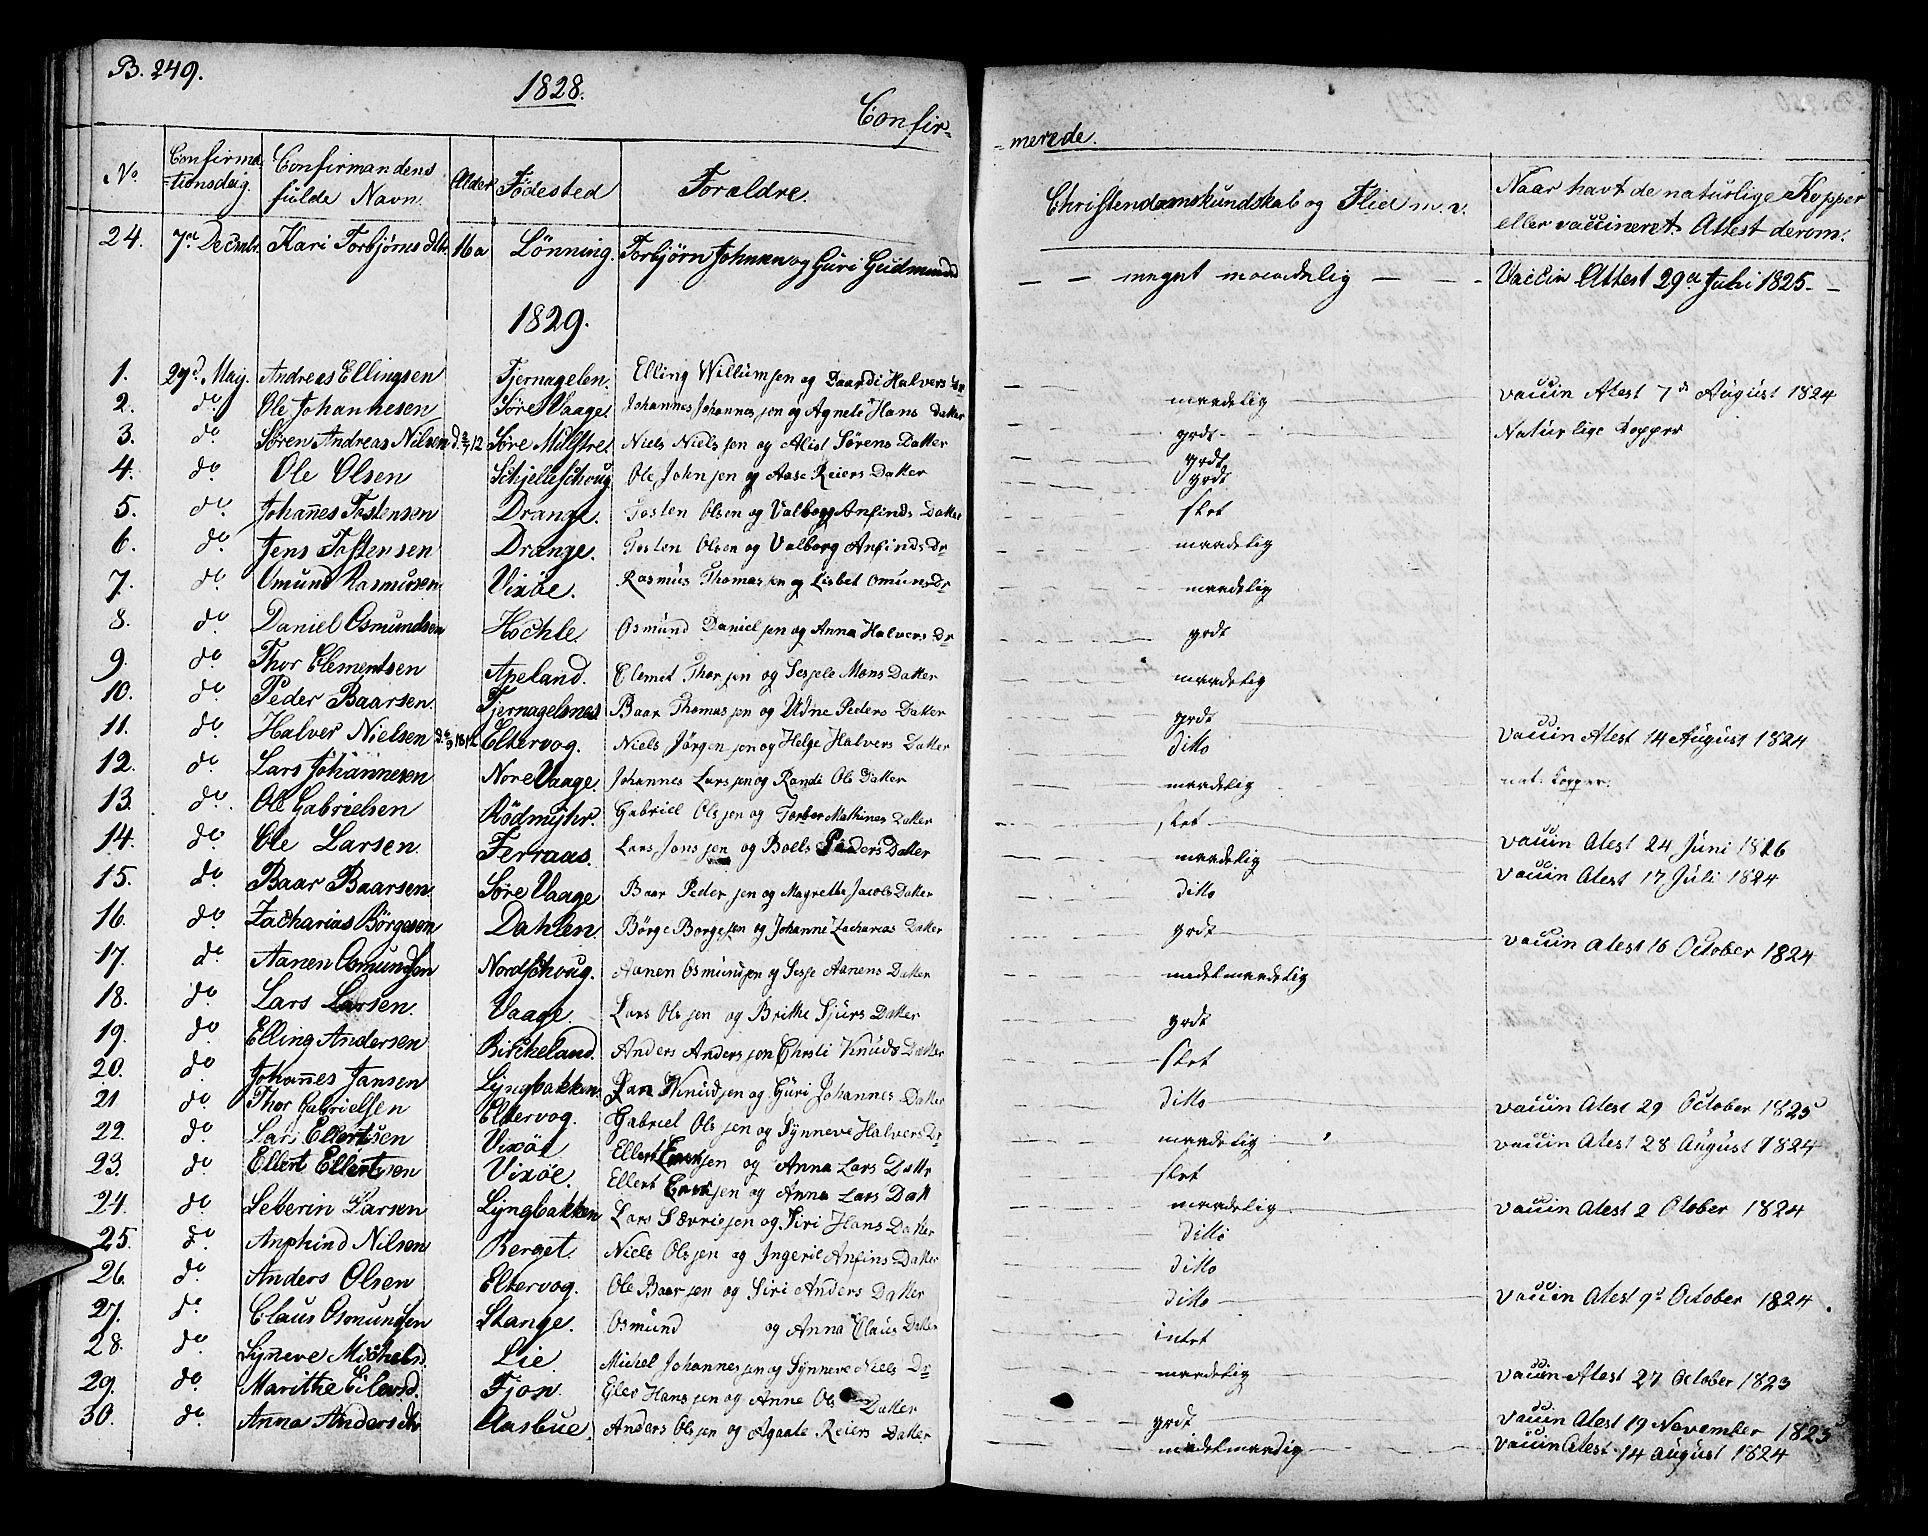 B. 249.
1828.
Confir-
-merede.
No Confirma-tionsdag. Confirmandens fulde Navn. Alder Födested Foraldre. Christendomskundskab og Flied m. v. Naar havt de naturlige Kopper eller vaccineret. Attest derom.
24. 7de Decmbr. Kari Torbjörns dtr. 16 a Lönning. Torbjörn Johnsen og Guri Geidmunds — — meget maadelig — — Vaccin Attest 29de Juli 1825. —
1829.
1. 29d. Maij. Andreas Ellingsen Tjernagelen. Elling Willumsen og Baardi Halvers Dr — maadelig vaccin Atest 7de August 1824
2. do Ole Johannesen Söre Vaage. Johannes Johannessen og Agnete Hans Datter — godt — Naturlige Kopper
3. do Sören Andreas Nilsen Söre Mulstre. Niels Nielssen og Alist Sörens Datter — godt
4. do Ole Olsen Schjelleschoug Ole Johnsen og Aase Reiers Datter — godt
5. do Johannes Tostensen Drange. Tosten Olsen og Valborg Anfinds Datter — slet
6. do Jens Tostensen Drange. Tosten Olsen og Valborg Anfinds Dr — maadelig
7. do Omund Rasmusen Vixöe. Rasmus Thomassen og Lisbet Omuns Dr — maadelig
8. do Daniel Osmundsen Höchle. Osmund Danielsen og Anna Halvers Dr — godt
9. do Thor Clementsen Apeland. Clemet Thorsen og Sesjele Mons Datter — maadelig
10. do Peder Baarsen. Tjernagelsnes. Baar Thomassen og Udne Peders Datter — godt
11. do Halver Nielsen Eltervog. Niels Jörgensen og Helge Halvers Datter — ditto vaccin Atest 14 August 1824
12. do Lars Johannesen Nore Vaage. Johannes Larssen og Randi Ols Datter — maadelig nat. Kopper.
13. do Ole Gabrielsen Rödmyhr. Gabriel Olssen og Torber Mathines Datter — slet —
14. do Ole Larsen. Ferraas. Lars Jonssen og Boels Peders Datter — maadelig vaccin Atest 24 Juni 1826
15. do Baar Baarsen. Söre Vaage Baar Pedersen og Magrethe Jacobs Datter — ditto vaccin Atest 17 Juli 1824
16. do Zacharias Börgesen Dahlen. Börge Borgesen og Johanne Zacharias Datter — godt — vaccin Atest 16 October 1824
17. do Aanen Osmundsen Nordschoug. Aanen Osmundsen og Sesje Aanens Datter — madelmaadelig
18. do Lars Larsen. Vaage. Lars Olssen og Brithe Sjurs Datter — godt
19. do Elling Andersen Bircheland. Anders Anderssen Christi Knuds Datter — slet
20. do Johannes Jansen Lijngbakken Jan Knudsen og Guri Johannes Datter — ditto — vaccin Atest 29 October 1825
21 do Thor Gabrielsen Eltervog. Gabriel Olssen og Synneve Halvers Dr — maadelig — vaccin Atest 28 August 1824
22. do Lars Ellertsen Vixöe Ellert Larssen og Anna Lars Dattr — slet
23. do Ellert Ellertssen Vixöe. Ellert Larssen og Anna Lars Datt — maadelig vaccin Atest 2 Otober 1824
24. do Seberin Larsen Lijngbakken Lars Sævrinsen og Siri Hans Datter — ditto
25. do Anphind Nilsen Berget. Niels Olssen og Ingeril Anfins Datter — ditto
26. do Anders Olsen Eltervog. Ole Baarsen og Siri Anders Datter — ditto — vaccin Atest 9de October 1824.
27. do Claus Osmundsen Stange. Osmund og Anna Claus Datter — intet
28. do Synneve Michelsd. Lie. Michel Johannessen og Synneve Niels Dr — maadelig vaccin Atest 27 October 1823
29. do Marithe Eilersd. Fjon. Eler Hanssen og Anne Ols Datter — godt — vaccin Atest 19 November 1825
30. do Anna Andersdtr Aasbue. Anders Olssen og Agaate Reiers Datter — middelmaadig vaccin Atest 14 august 1824